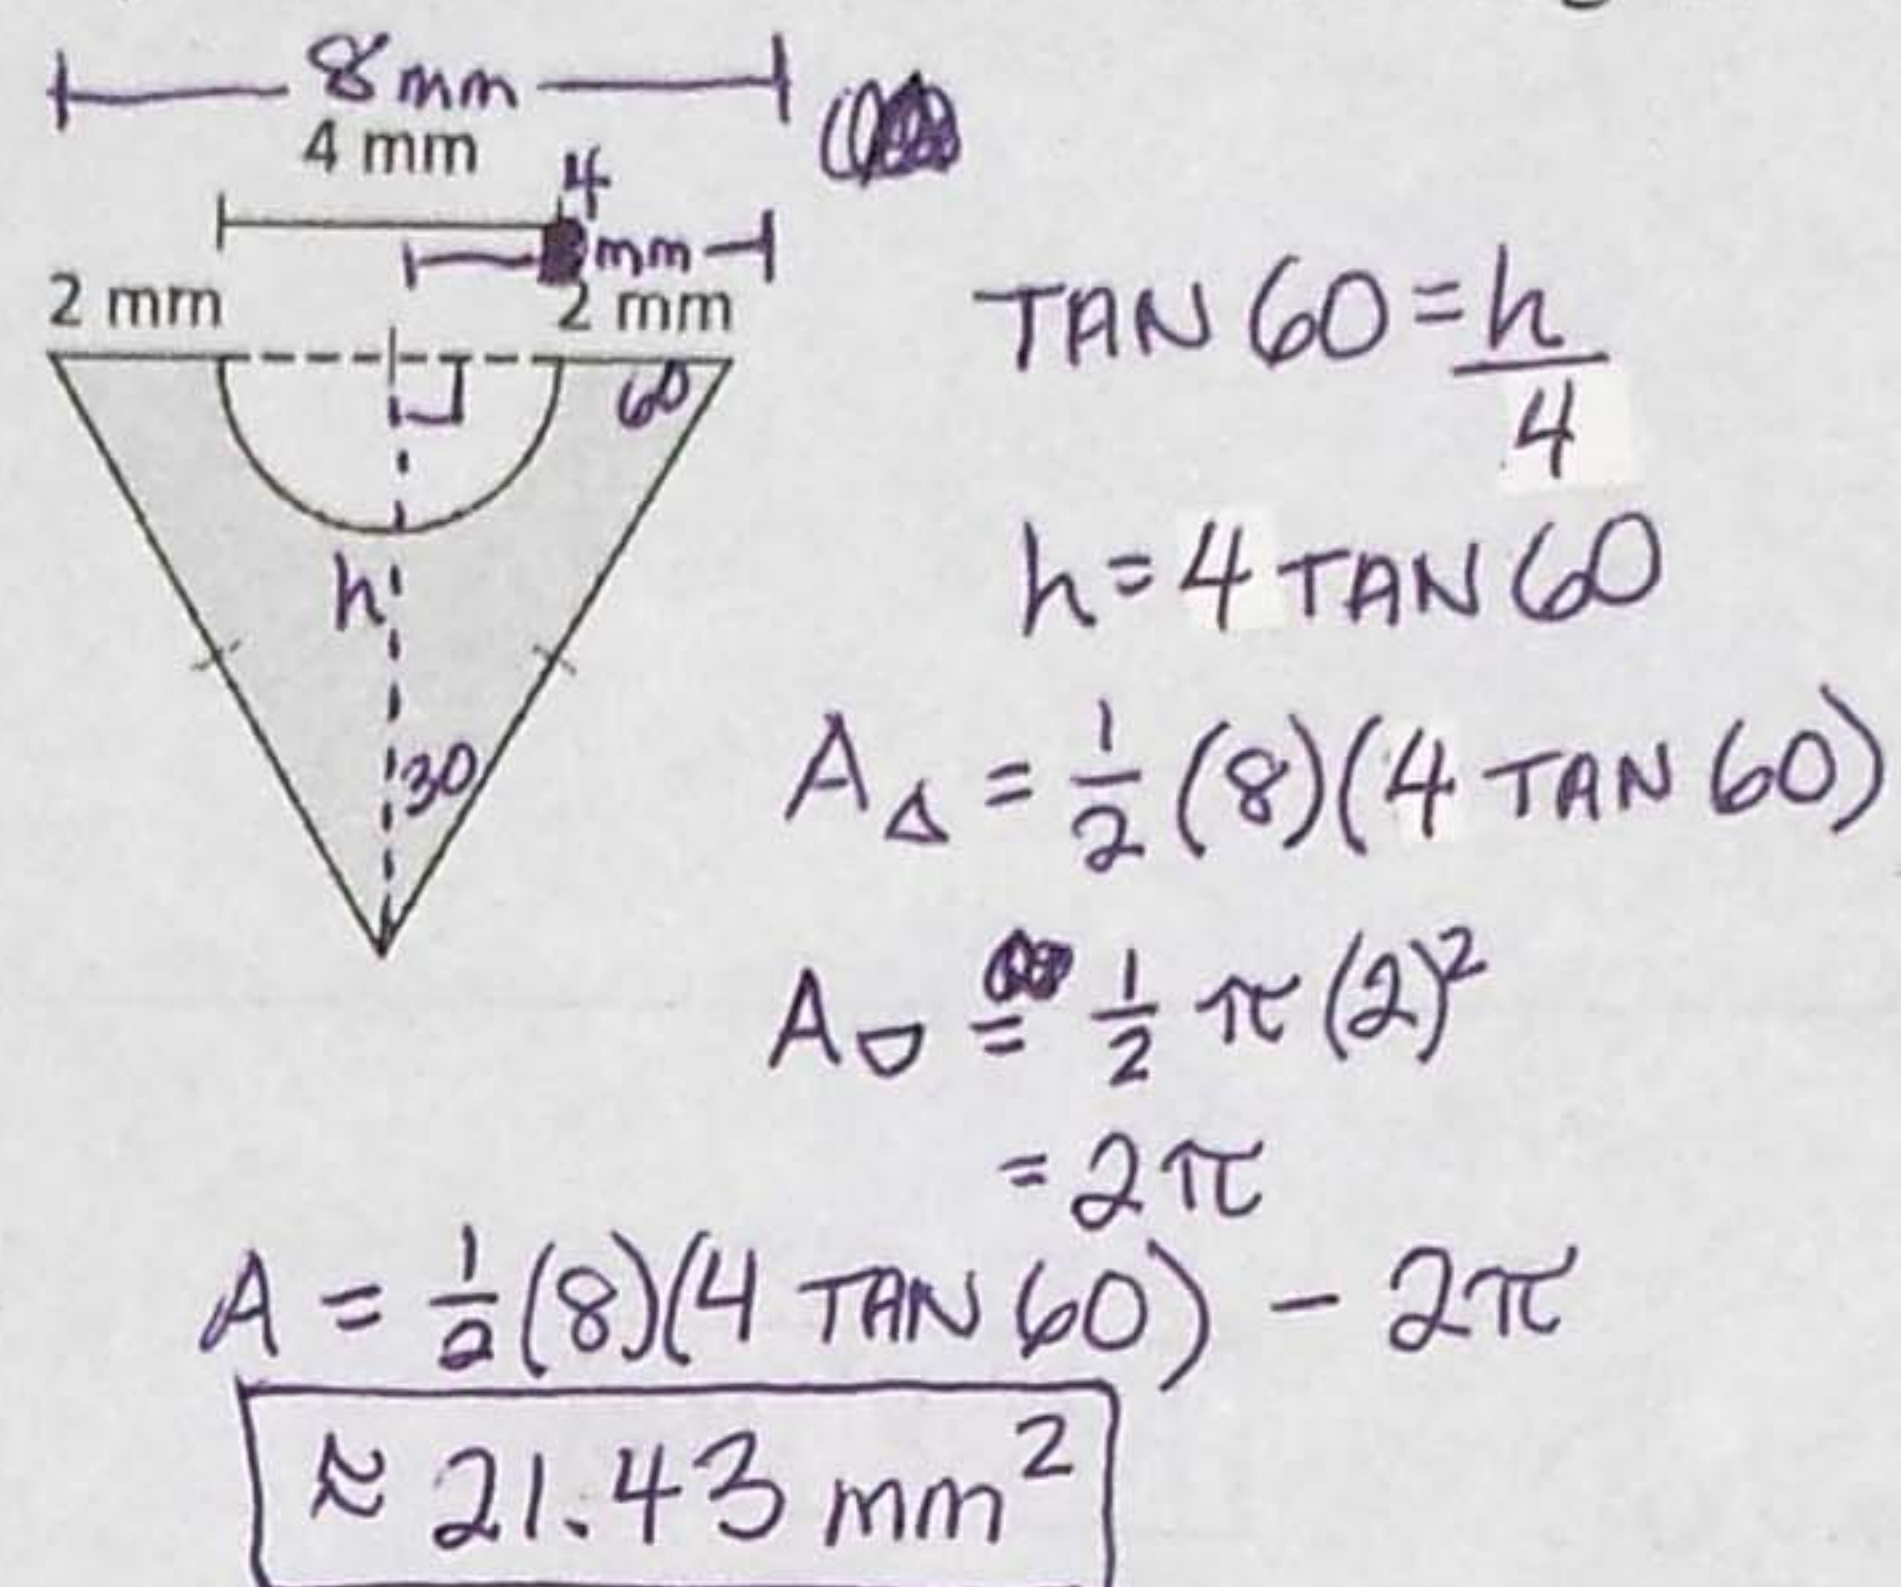 8mm
4 mm
4
mm
2 mm
2 mm
60
h
30
TAN 60 = h/4
h = 4 TAN 60
A△ = 1/2 (8)(4 TAN 60)
A⌓ = 1/2 π(2)²
= 2π
A = 1/2 (8)(4 TAN 60) - 2π
≈ 21.43 mm²